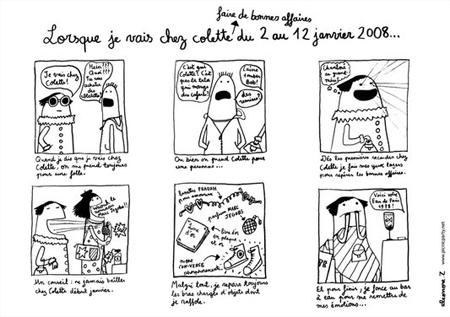 faire de bonnes affaires
Lorsque je vais chez colette du 2 au 12 janvier 2008...
Je vais chez
Colette!
Hein!!!
Quoi!!!
Tu vas
acheter
des
Quand je dis que je vais chez
Colette, on me prend toujours
pour une folle.
C'est qui
Colette? C'est
pas le
qui mange
des cafards?
Ou bien on prend Colette pour
une personne...
Dès les premières secondes chez
Colette je fais mes yeux laser
pour repérer les bonnes affaires.
Un conseil: ne jamais bailler
chez Colette début janvier.
parfum MARC
JACOBS
Malgré tout, je repars toujours
les bras chargés d'objets dont
je raffole.
Voici votre
Eau de Pluie
1978!
Et pour finir, je fonce au bar
à eau pour me remettre de
mes émotions...
www.picnicparty.net
eleonore Z